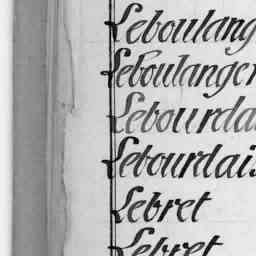 Leboulang
Leboulanger
Lebourdai
Lebourdais
Lebret
Lebret